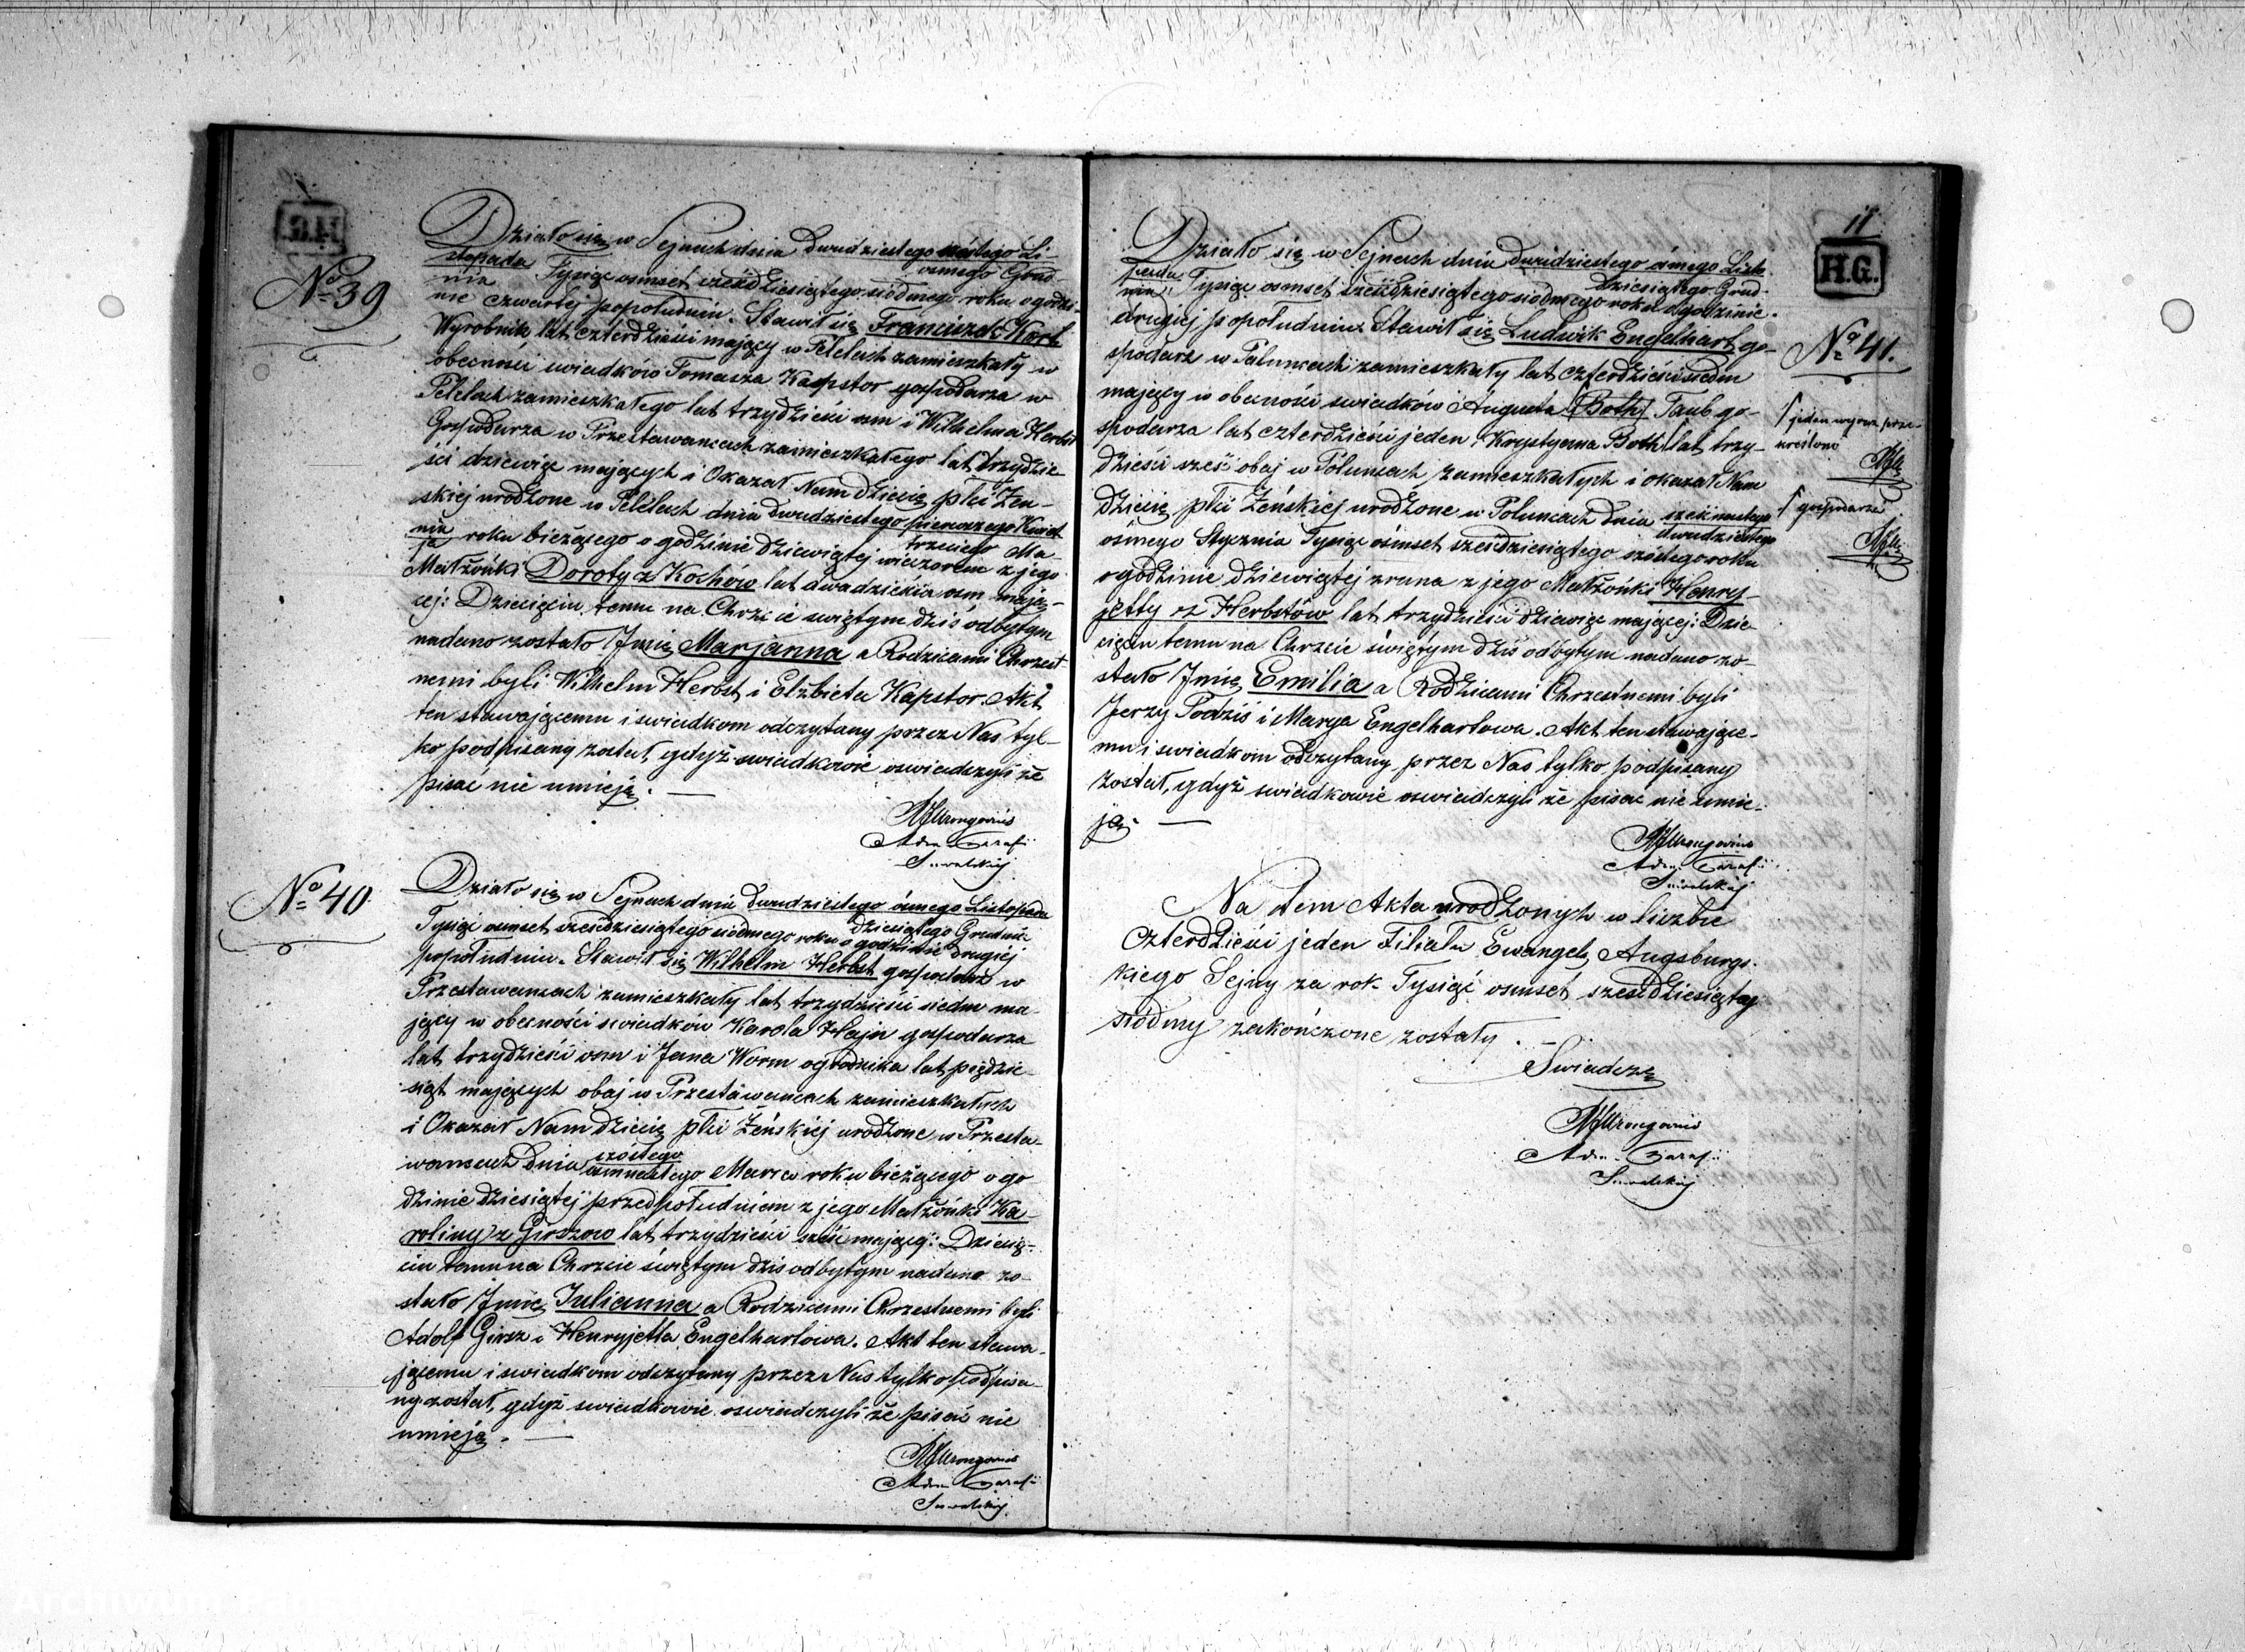 No 39
Działo się w Sejnach dnia dwudziestego szóstego Li-
stopada / ósmego Grud-
nia Tysiąc osmset sześdziesiątego siódmego roku o godzi-
nie czwartej popołudniu. Stawił się Franciszek Korb
Wyrobnik lat czterdzieści mający w Pelelach zamieszkały w
obecności swiadków Tomasza Kapstor gospodarza w
Pelelach zamieszkałego lat trzydzieści osm i Wilhelma Herbst
Gospodarza w Przestawancach zamieszkałego lat trzydzie-
ści dziewięć mających i Okazał Nam dziecię płci Żeń-
skiej urodzone w Pelelach dnia dwudziestego pierwszego Kwiet-
nia / trzeciego Ma-
ja roku bieżącego o godzinie dziewiątej wieczorem z jego
Małżonki Doroty z Kochów lat dwadzieścia osm mają-
cej: Dziecięciu temu na Chrzcie swiętym dziś odbytym
nadano zostało Imię Marjanna a Rodzicami Chrzest-
nemi byli Wilhelm Herbst i Elżbieta Kapstor. Akt
ten stawającemu i swiadkom odczytany przez Nas tyl-
ko podpisany został, gdyż swiadkowie oswiadczyli że
pisać nie umieją. —
Wrongovius
Adm. Parafii
Suwalskiej
No 40.
Działo się w Sejnach dnia dwudziestego ósmego Listopada
dziesiątego Grudnia
Tysiąc osmset sześdziesiątego siódmego roku o godzinie drugiej
popołudniu. Stawił się Wilhelm Herbst gospodarz w
Przestawancach zamieszkały lat trzydzieści siedm ma-
jący w obecności swiadków Karola Hajn gospodarza
lat trzydzieści osm i Jana Worm ogrodnika lat pięćdzie-
siąt mających obaj w Przestawancach zamieszkałych
i Okazał Nam dziecię płci Żeńskiej urodzone w Przesta-
wancach dnia szóstego
osmnastego Marca roku bieżącego o go-
dzinie dziesiątej przedpołudniem z jego Małżonki Ka-
roliny z Girszow lat trzydzieści sześć mającej: Dziecię-
ciu temu na Chrzcie świętym dziś odbytym nadano zo-
stało Imię Julianna a Rodzicami Chrzestnemi byli
Adolf Girsz i Henryjetta Engelhartowa. Akt ten stawa-
jącemu i swiadkom odczytany przez Nas tylko podpisa-
ny został, gdyż swiadkowie oswiadczyli że pisać nie
umieją. —
Wrongovius
Adm. Parafii
Suwalskiej
11
H.G.
No 41.
Działo się w Sejnach dnia dwudziestego ósmego Listo-
pada / dziesiątego Grud-
nia Tysiąc osmset sześdziesiątego siódmego roku o godzinie
drugiej popołudniu. Stawił się Ludwik Engelhart go-
spodarz w Poluncach zamieszkały lat czterdzieści siedm
mający w obecności swiadków Augusta (Both) Taub go-
spodarza lat czterdzieści jeden i Krystyana Both lat trzy-
dzieści sześć obaj w Poluncach zamieszkałych i okazał Nam
dziecię płci Żeńskiej urodzone w Poluncach dnia szesnastego
dwudziestego
ósmego Stycznia Tysiąc ósmset sześdziesiątego szóstego roku
o godzinie dziewiątej zrana z jego Małżonki Henry-
jetty z Herbstów lat trzydzieści dziewięć mającej: Dzie-
cięciu temu na Chrzcie świętym dziś odbytym nadano zo-
stało Imię Emilia a Rodzicami Chrzestnemi byli
Jerzy Podziś i Marya Engelhartowa. Akt ten stawające-
mu i swiadkom odczytany przez Nas tylko podpisany
został, gdyż swiadkowie oswiadczyli że pisać nie umie-
ją. —
jeden wyraz prze-
kreślono
gospodarza
Wrongovius
Adm. Parafii
Suwalskiej
Na tem Akta urodzonych w liczbie
Czterdzieści jeden Filiału Ewangel. Augsburgs-
kiego Sejny za rok Tysiąć osmset szesdziesiąty
siódmy zakończone zostały. —
Swiadczę
Wrongovius
Adm. Parafii
Suwalskiej
Archiwum Pa